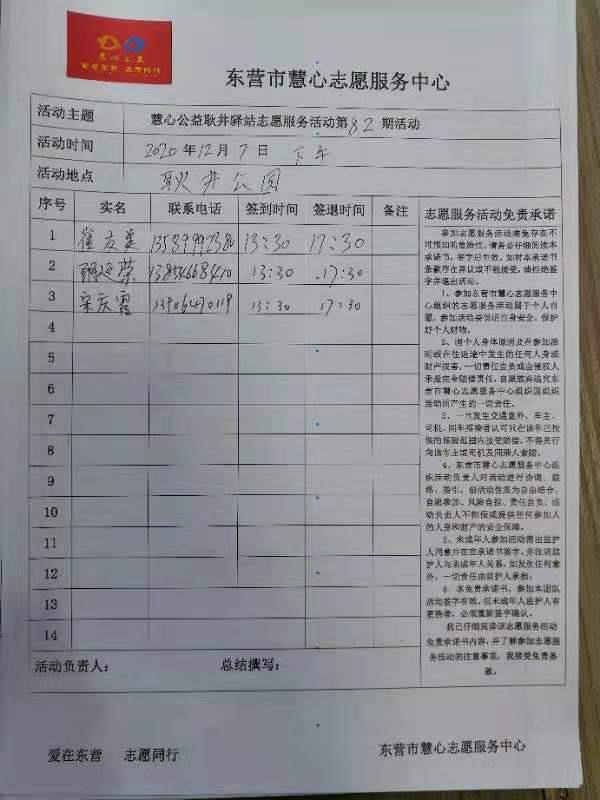 慧心公益
爱在东营 志愿同行
东营市慧心志愿服务中心
活动主题 慧心公益耿井驿站志愿服务活动第82期活动
活动时间 2020年12月7日 下午
活动地点 耿井公园
序号 实名 联系电话 签到时间 签退时间 备注
1 崔友英 13589992380 13:30 17:30
2 延荣 13854668410 13:30 17:30
3 宋庆霞 13906470119 13:30 17:30
4
5
6
7
8
9
10
11
12
13
14
志愿服务活动免责承诺
参加志愿服务活动难免存在不
可预知的危险性,请务必仔细阅读本
承诺书,签字后生效。如对本承诺书
条款存在异议或不能接受,请拒绝签
字并退出活动。
1、参加东营市慧心志愿服务中
心组织的志愿服务活动属于个人自
愿,参加活动要保证自身安全,保护
好个人财物。
2、因个人身体原因及在参加活
动或在往返途中发生的任何人身或
财产损害,一切责任自负或由侵权人
承担完全赔偿责任,自愿放弃追究东
营市慧心志愿服务中心组织因组织
活动而产生的一切责任。
3、一旦发生交通意外,车主、
司机、同车搭乘者认可只在该车已投
保的保险范围内接受赔偿,不得另行
向该车主或司机及同乘人索赔。
4、东营市慧心志愿服务中心组
织活动负责人对活动进行协调、联
络、指引,但活动性质为自由结合、
自愿参加、风险自担、责任自负,活
动负责人不担保或提供任何参加人
的人身和财产的安全保障。
5、未成年人参加活动需由监护
人同意并在在承诺书签字,并注明监
护人与未成年人关系,如发生任何意
外,一切责任由监护人承担。
6、本免责承诺书,参加本团队
活动签字有效,但未成年人监护人有
更换者,必须重新签字确认。
我已仔细阅读该志愿服务活动
免责承诺书内容,并了解参加志愿服
务活动的注意事项,我接受免责条
款。
活动负责人: 总结撰写:
爱在东营 志愿同行 东营市慧心志愿服务中心